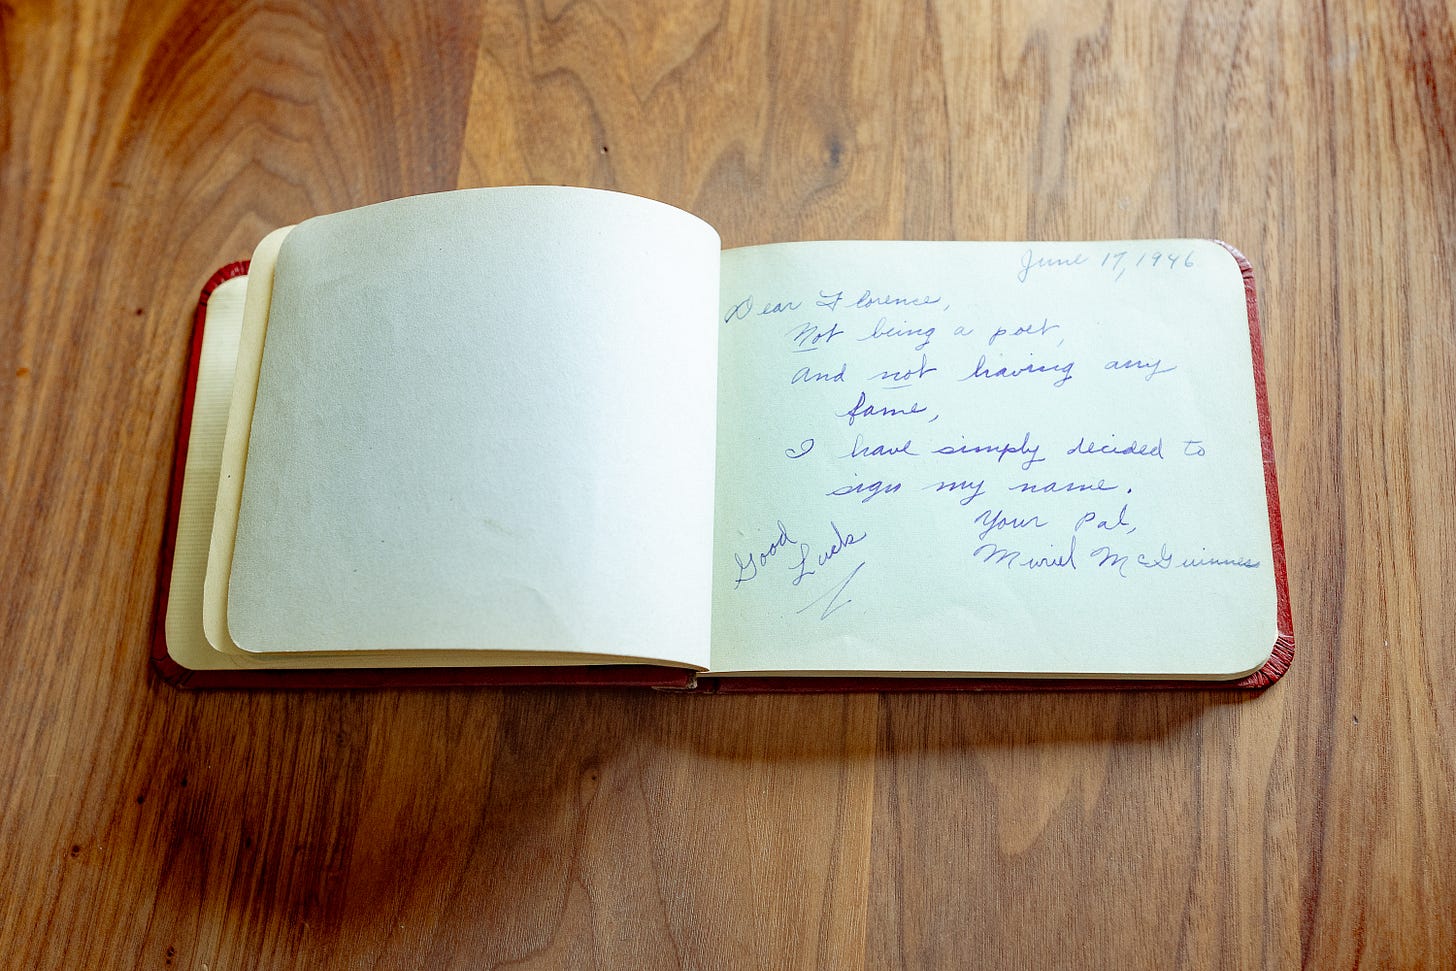 June 17, 1946
Dear Florence,
Not being a poet,
And not having any
fame,
I have simply decided to
sign my name.
Your Pal,
Muriel McGuinness
Good
Luck